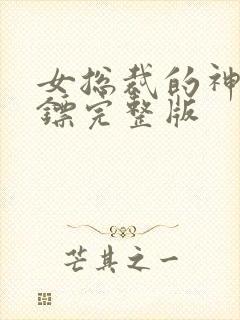 女总裁的神
镖完整版
芒其之一